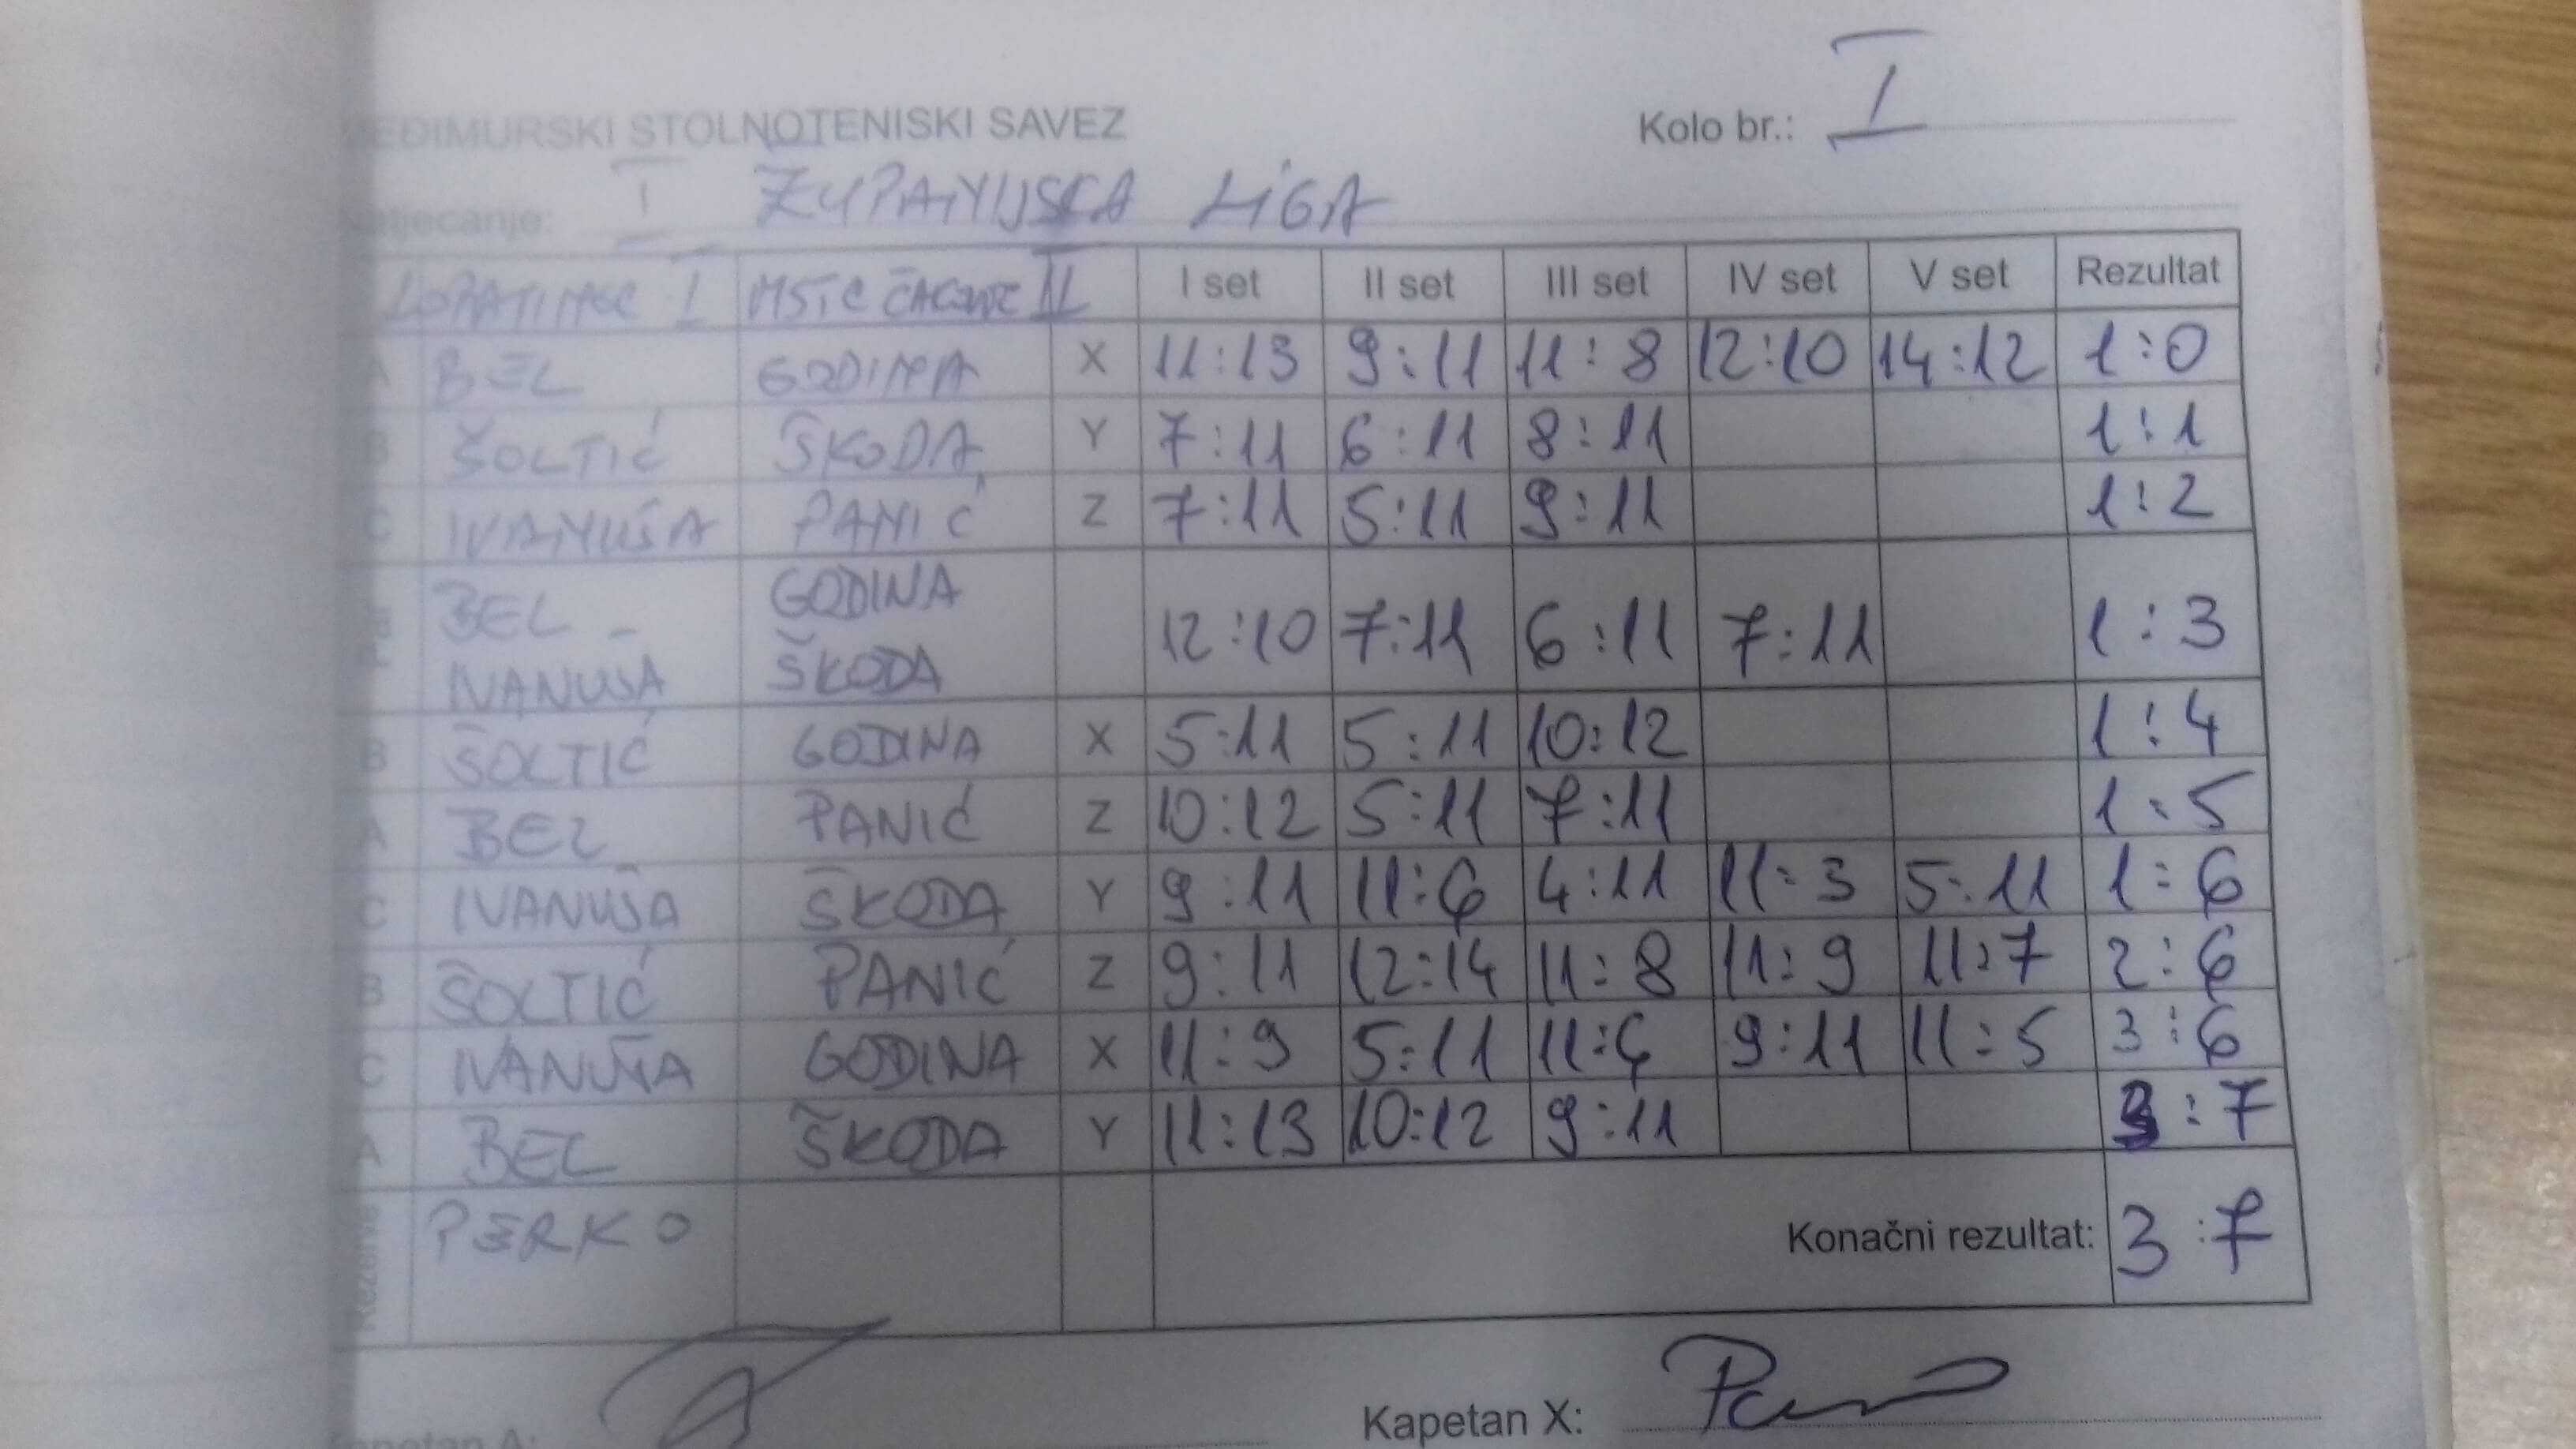 MEĐIMURSKI STOLNOTENISKI SAVEZ Kolo br.: I
Natjecanje: I ŽUPANIJSKA LIGA
LOPATINEC I MSTC ČAKOVEC II I set II set III set IV set V set Rezultat
A BEL GODINA X 11:13 9:11 11:8 12:10 14:12 1:0
B ŠOLTIĆ ŠKODA Y 7:11 6:11 8:11 1:1
C IVANUŠA PANIĆ Z 7:11 5:11 9:11 1:2
BEL - GODINA
IVANUŠA ŠKODA 12:10 7:11 6:11 7:11 1:3
B ŠOLTIĆ GODINA X 5:11 5:11 10:12 1:4
A BEL PANIĆ Z 10:12 5:11 7:11 1:5
C IVANUŠA ŠKODA Y 9:11 11:6 4:11 11:3 5:11 1:6
B ŠOLTIĆ PANIĆ Z 9:11 12:14 11:8 11:9 11:7 2:6
C IVANUŠA GODINA X 11:9 5:11 11:6 9:11 11:5 3:6
A BEL ŠKODA Y 11:13 10:12 9:11 3:7
Rezerve PERKO Konačni rezultat: 3:7
Kapetan A: Kapetan X: